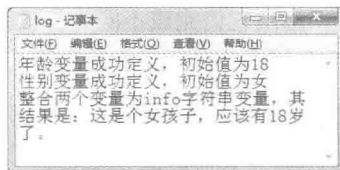 log - 记事本
文件(F) 编辑(E) 格式(O) 查看(V) 帮助(H)
年龄变量成功定义，初始值为18
性别变量成功定义，初始值为女
整合两个变量为info字符串变量，其
结果是：这是个女孩子，应该有18岁
了。